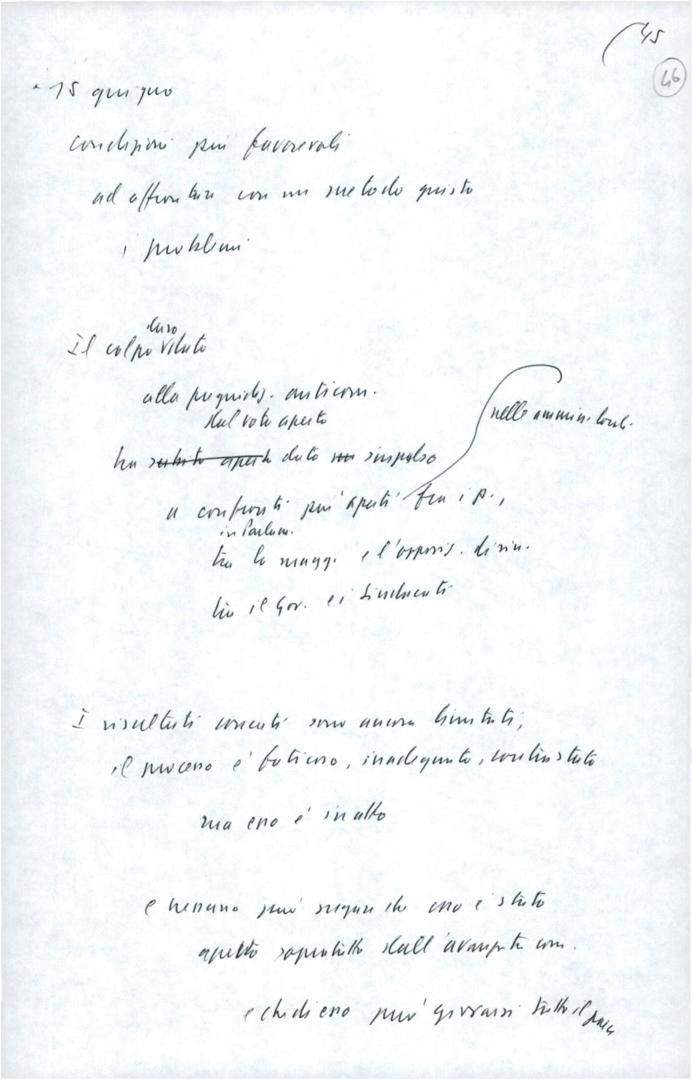 45
46
15 giugno
condizioni più favorevoli
ad affrontare con un metodo giusto
i problemi
duro
Il colpo vibrato
alla pregiudiz. anticom.
dal voto aperto
ha dato un impulso
nelle ammin. local.
a confronti più aperti fra i p.,
in Parlam.
tra la magg. e l'opposiz. di sin.
tra il Gov. e i Sindacati
I risultati concreti sono ancora limitati,
il processo è faticoso, inadeguato, contrastato
ma esso è in atto
e nessuno può negare che esso è stato
aperto soprattutto dall'avanzata com.
e che di esso può giovarsi tutto il paese